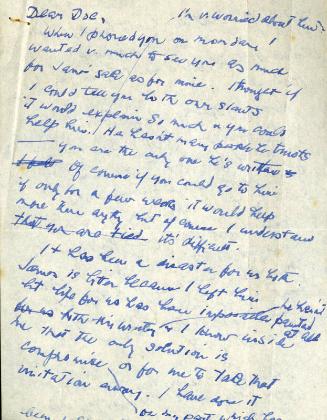 Dear Doc, I'm v. worried about him
When I phoned you on monday I
wanted v. much to see you as much
for Jams' sake as for mine. I thought if
I could tell you both our slants
it would explain so much & you could
help him. He hasn't many people he trusts
you are the only one he's written to
Of course if you could go to him
if only for a few weeks it would help
more than anything but of course I understand
that you are tied its difficult.
It has been a disaster for us both
James is bitter because I left him he hasn't
but life for us has been impossible painted
for us both this winter & I know inside at all
me that the only solution is
compromise or for me to take that
irritation away. I have done it
on my part which has